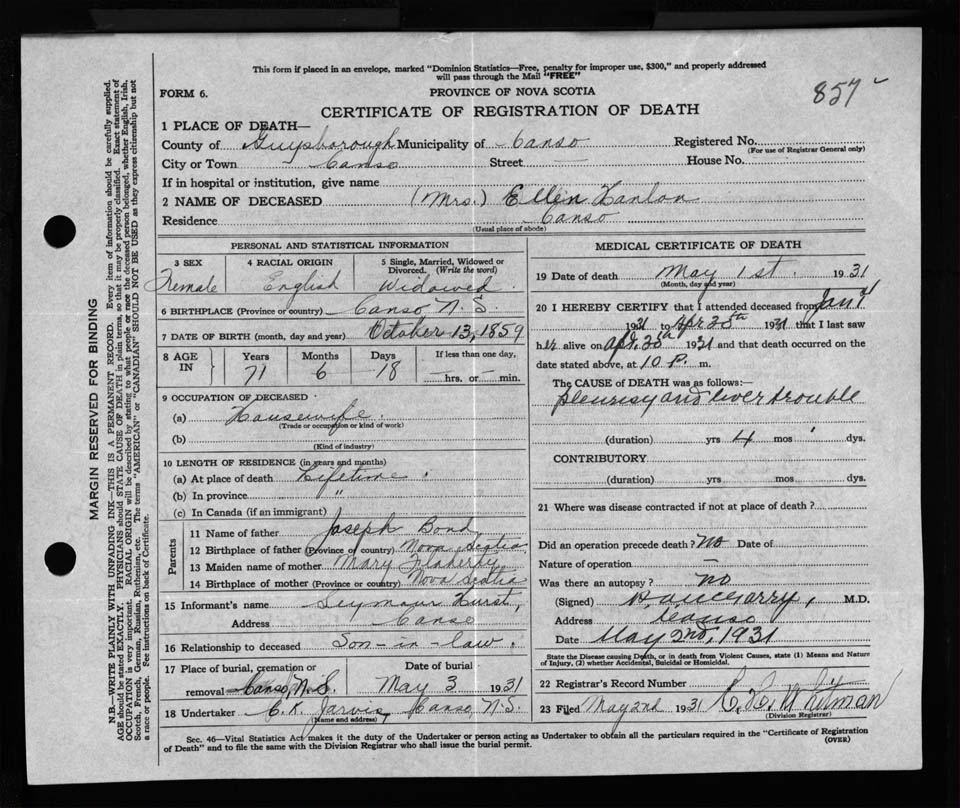 This form if placed in an envelope, marked "Dominion Statistics—Free, penalty for improper use, $300," and properly addressed
will pass through the Mail "FREE"
857
FORM 6.
PROVINCE OF NOVA SCOTIA
CERTIFICATE OF REGISTRATION OF DEATH
1 PLACE OF DEATH—
County of Guysborough Municipality of Canso Registered No.
(For use of Registrar General only)
City or Town Canso Street House No.
If in hospital or institution, give name
2 NAME OF DECEASED (Mrs.) Ellen Hanlon
Residence Canso
(Usual place of abode)
PERSONAL AND STATISTICAL INFORMATION
3 SEX 4 RACIAL ORIGIN 5 Single, Married, Widowed or Divorced. (Write the word)
Female English Widowed.
6 BIRTHPLACE (Province or country) Canso N.S.
7 DATE OF BIRTH (month, day and year) October 13, 1859
8 AGE IN Years Months Days If less than one day,
71 6 18 hrs. or min.
9 OCCUPATION OF DECEASED
(a) Housewife.
(Trade or occupation or kind of work)
(b)
(Kind of industry)
10 LENGTH OF RESIDENCE (in years and months)
(a) At place of death Lifetime.
(b) In province "
(c) In Canada (if an immigrant)
Parents
11 Name of father Joseph Bond
12 Birthplace of father (Province or country) Nova Scotia
13 Maiden name of mother Mary Flaherty
14 Birthplace of mother (Province or country) Nova Scotia
15 Informant's name Seymour Hurst,
Address Canso
16 Relationship to deceased Son-in-law.
17 Place of burial, cremation or Date of burial
removal Canso, N.S. May 3 1931
18 Undertaker C. K. Jarvis, Canso, N.S.
(Name and address)
MEDICAL CERTIFICATE OF DEATH
19 Date of death May 1st. 1931
(Month, day and year)
20 I HEREBY CERTIFY that I attended deceased from Jan
1931 to Apr 1931 that I last saw
her alive on Apr. 1931 and that death occurred on the
date stated above, at 10 P. m.
The CAUSE OF DEATH was as follows:—
pleurisy and liver trouble
(duration) yrs 4 mos dys.
CONTRIBUTORY
(duration) yrs. mos. dys.
21 Where was disease contracted if not at place of death?
Did an operation precede death? No Date of
Nature of operation –
Was there an autopsy? no
(Signed) M.D.
Address Canso
Date May 2nd, 1931
State the Disease causing Death, or in death from Violent Causes, state (1) Means and Nature
of Injury, (2) whether Accidental, Suicidal or Homicidal.
22 Registrar's Record Number
23 Filed May 2nd 1931 Whitman
(Division Registrar)
Sec. 46—Vital Statistics Act makes it the duty of the Undertaker or person acting as Undertaker to obtain all the particulars required in the "Certificate of Registration
of Death" and to file the same with the Division Registrar who shall issue the burial permit. (OVER)
MARGIN RESERVED FOR BINDING
N.B.—WRITE PLAINLY WITH UNFADING INK—THIS IS A PERMANENT RECORD. Every item of information should be carefully supplied.
AGE should be stated EXACTLY. PHYSICIANS should STATE CAUSE OF DEATH in plain terms, so that it may be properly classified. Exact statement of
OCCUPATION is very important. RACIAL ORIGIN will be described by stating to what people or race the deceased person belonged, whether English, Irish,
Scotch, French, German, Russian, Ruthenian, etc. The terms "AMERICAN" or "CANADIAN" SHOULD NOT BE USED as they express citizenship but not
a race or people. See instructions on back of Certificate.